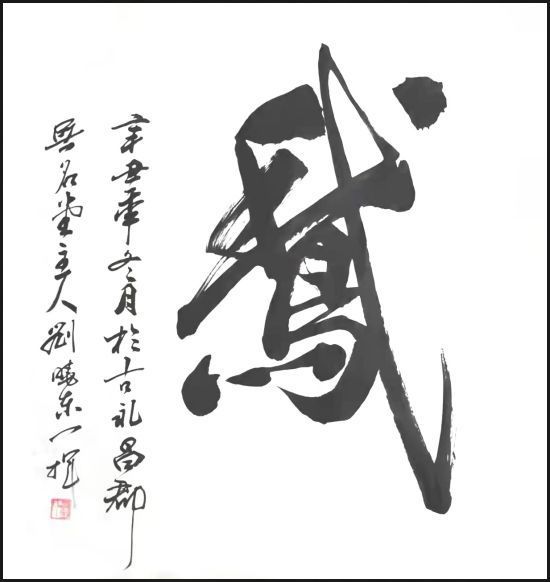 鵞
辛丑年冬月於古礼昌郡
無名堂主人劉曉东一揮